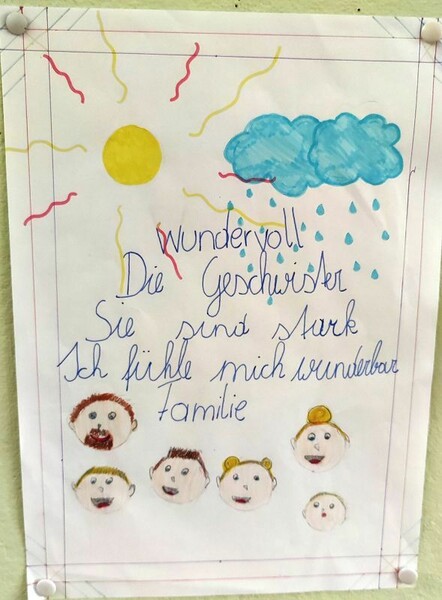 Wundervoll
Die Geschwister
Sie sind stark
Ich fühle mich wunderbar
Familie